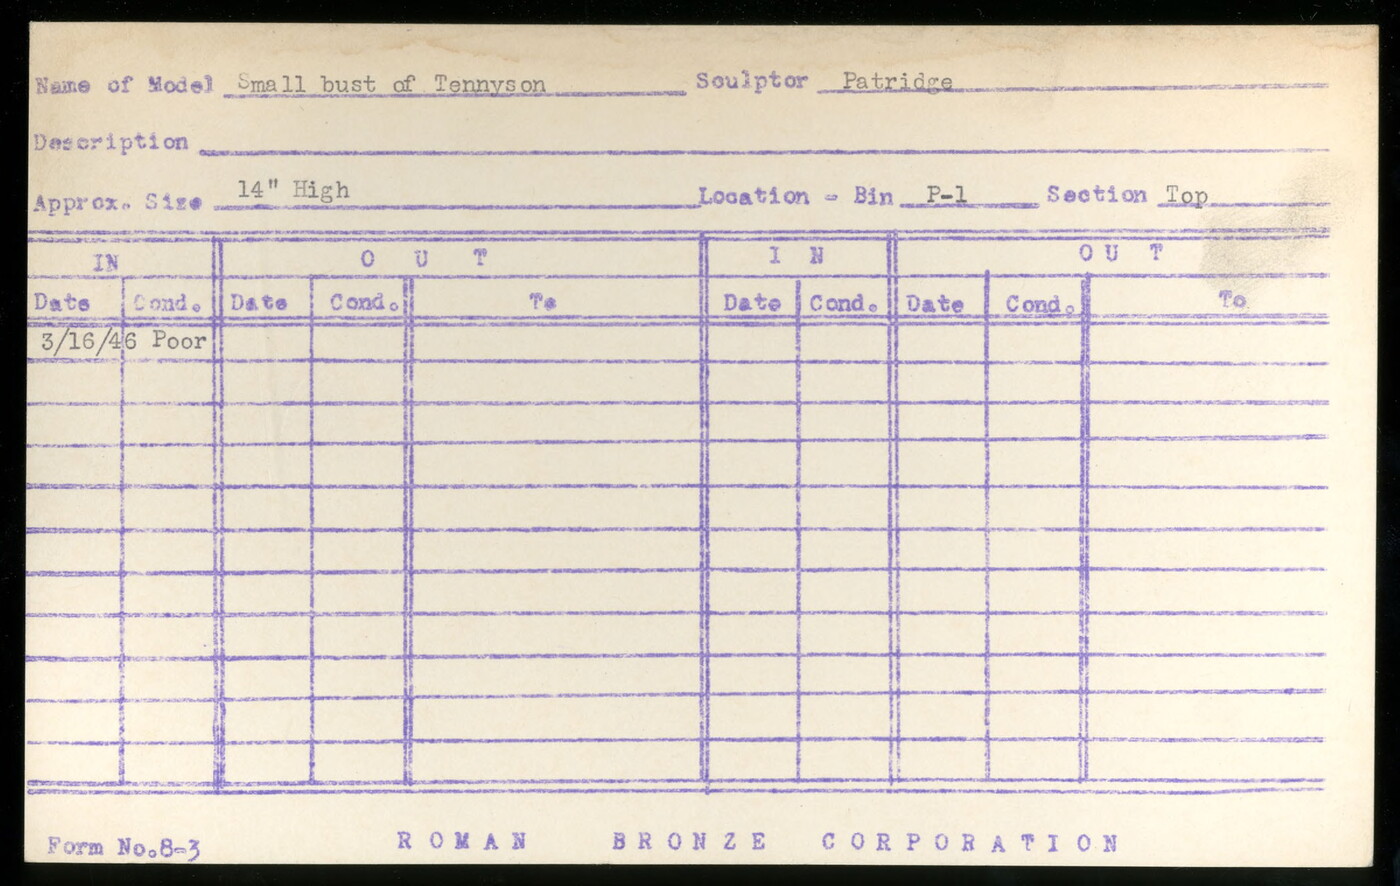 Name of Model Small bust of Tennyson Sculptor Patridge
Description
Approx. Size 14" High Location - Bin P-1 Section Top
IN OUT IN OUT
Date Cond. Date Cond. To Date Cond. Date Cond. To
3/16/46 Poor
Form No.8-3 ROMAN BRONZE CORPORATION